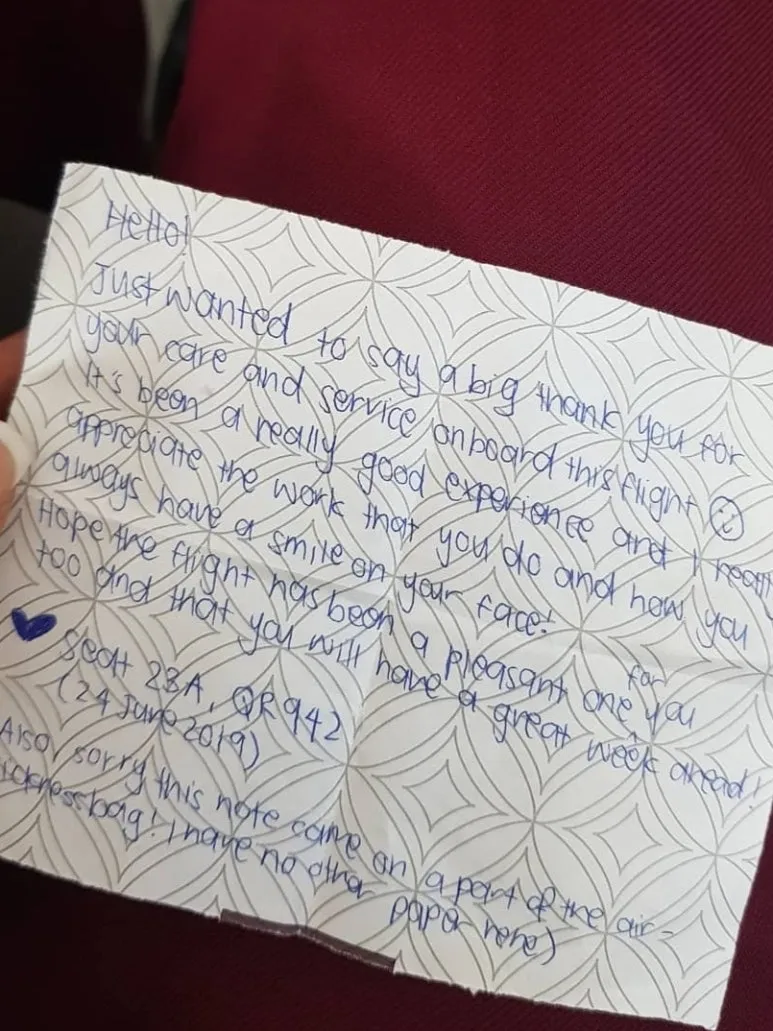 Hello!
Just wanted to say a big thank you for
your care and service onboard this flight ☺
It's been a really good experience and I really
appreciate the work that you do and how you
always have a smile on your face!
Hope the flight has been a pleasant one for you
too and that you will have a great week ahead!
♥ seat 23A, QR942
(24 June 2019)
Also, sorry this note came on a part of the air-
icknessbag! I have no other
paper here)